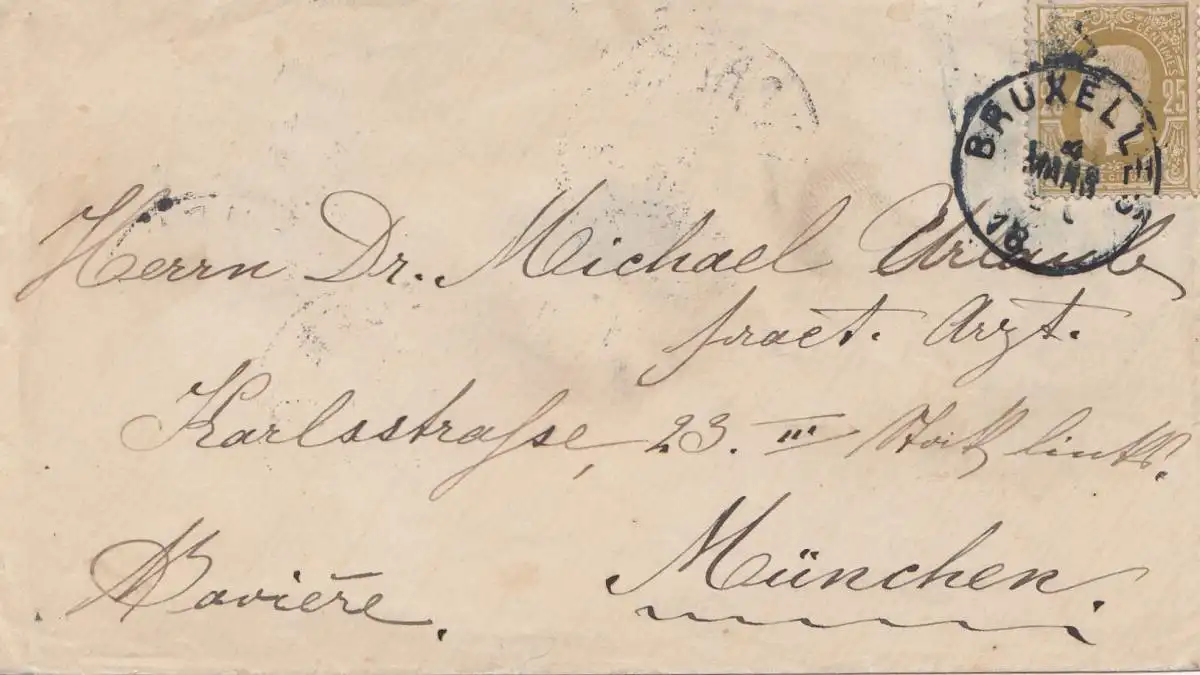 CENTIMES
25 25
BRUXELL
4
MARS
18
Herrn Dr. Michael Urlaub
pract. Arzt.
Karlsstraſse, 23. III Stock links.
München.
Bavière.